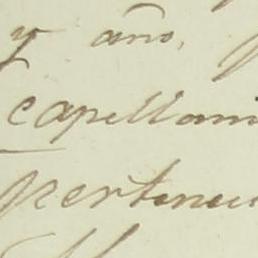 y año,
capellani
pertenec